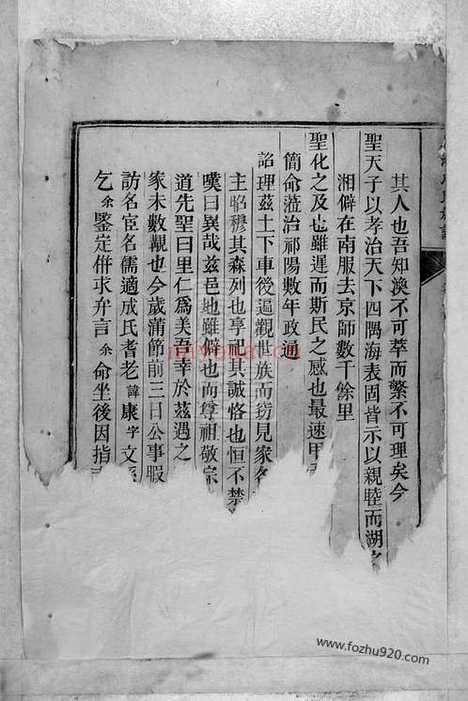 其人也吾知渙不可萃而繁不可理矣今
聖天子以孝治天下四隅海表固皆示以親睦而湖
湘僻在南服去京師數千餘里
聖化之及也雖遲而斯民之感也最速甲
簡命蒞治祁陽數年政通
詔理茲土下車後遍觀世族而竊見家各
主昭穆其森列也享祀其誠恪也恒不禁
嘆曰異哉茲邑地雖僻也而尊祖敬宗
道先聖曰里仁為美吾幸於茲遇之
家未數觀也今歲蒲節前三日公事暇
訪名宦名儒適成氏耆老諱康字文
乞余鑒定併求弁言余命坐後因指
nayona.cn
www.fozhu920.com